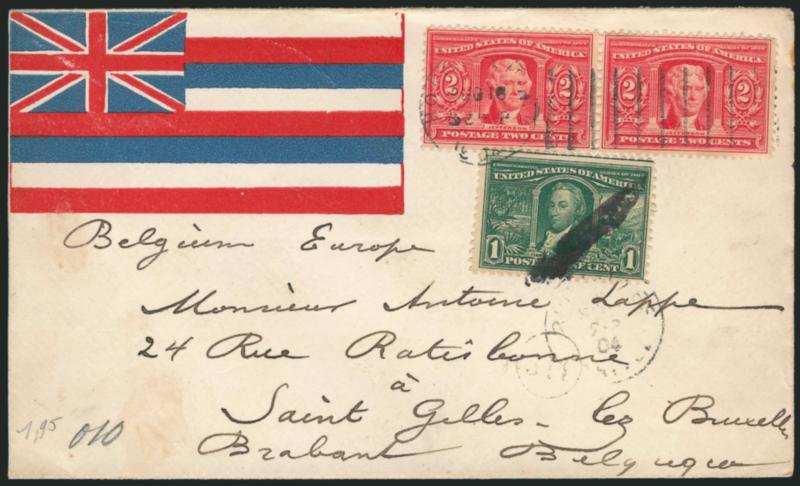 UNITED STATES OF AMERICA
2 2
JEFFERSON
POSTAGE TWO CENTS
UNITED STATES OF AMERICA
2 2
JEFFERSON
POSTAGE TWO CENTS
UNITED STATES OF AMERICA
1 POST CENT 1
04
Belgium Europe
Monsieur Antoine Lappe
24 Rue Ratisbonne
à
Saint Gelles - lez Bruxelles
Brabant Belgique
1,95 010